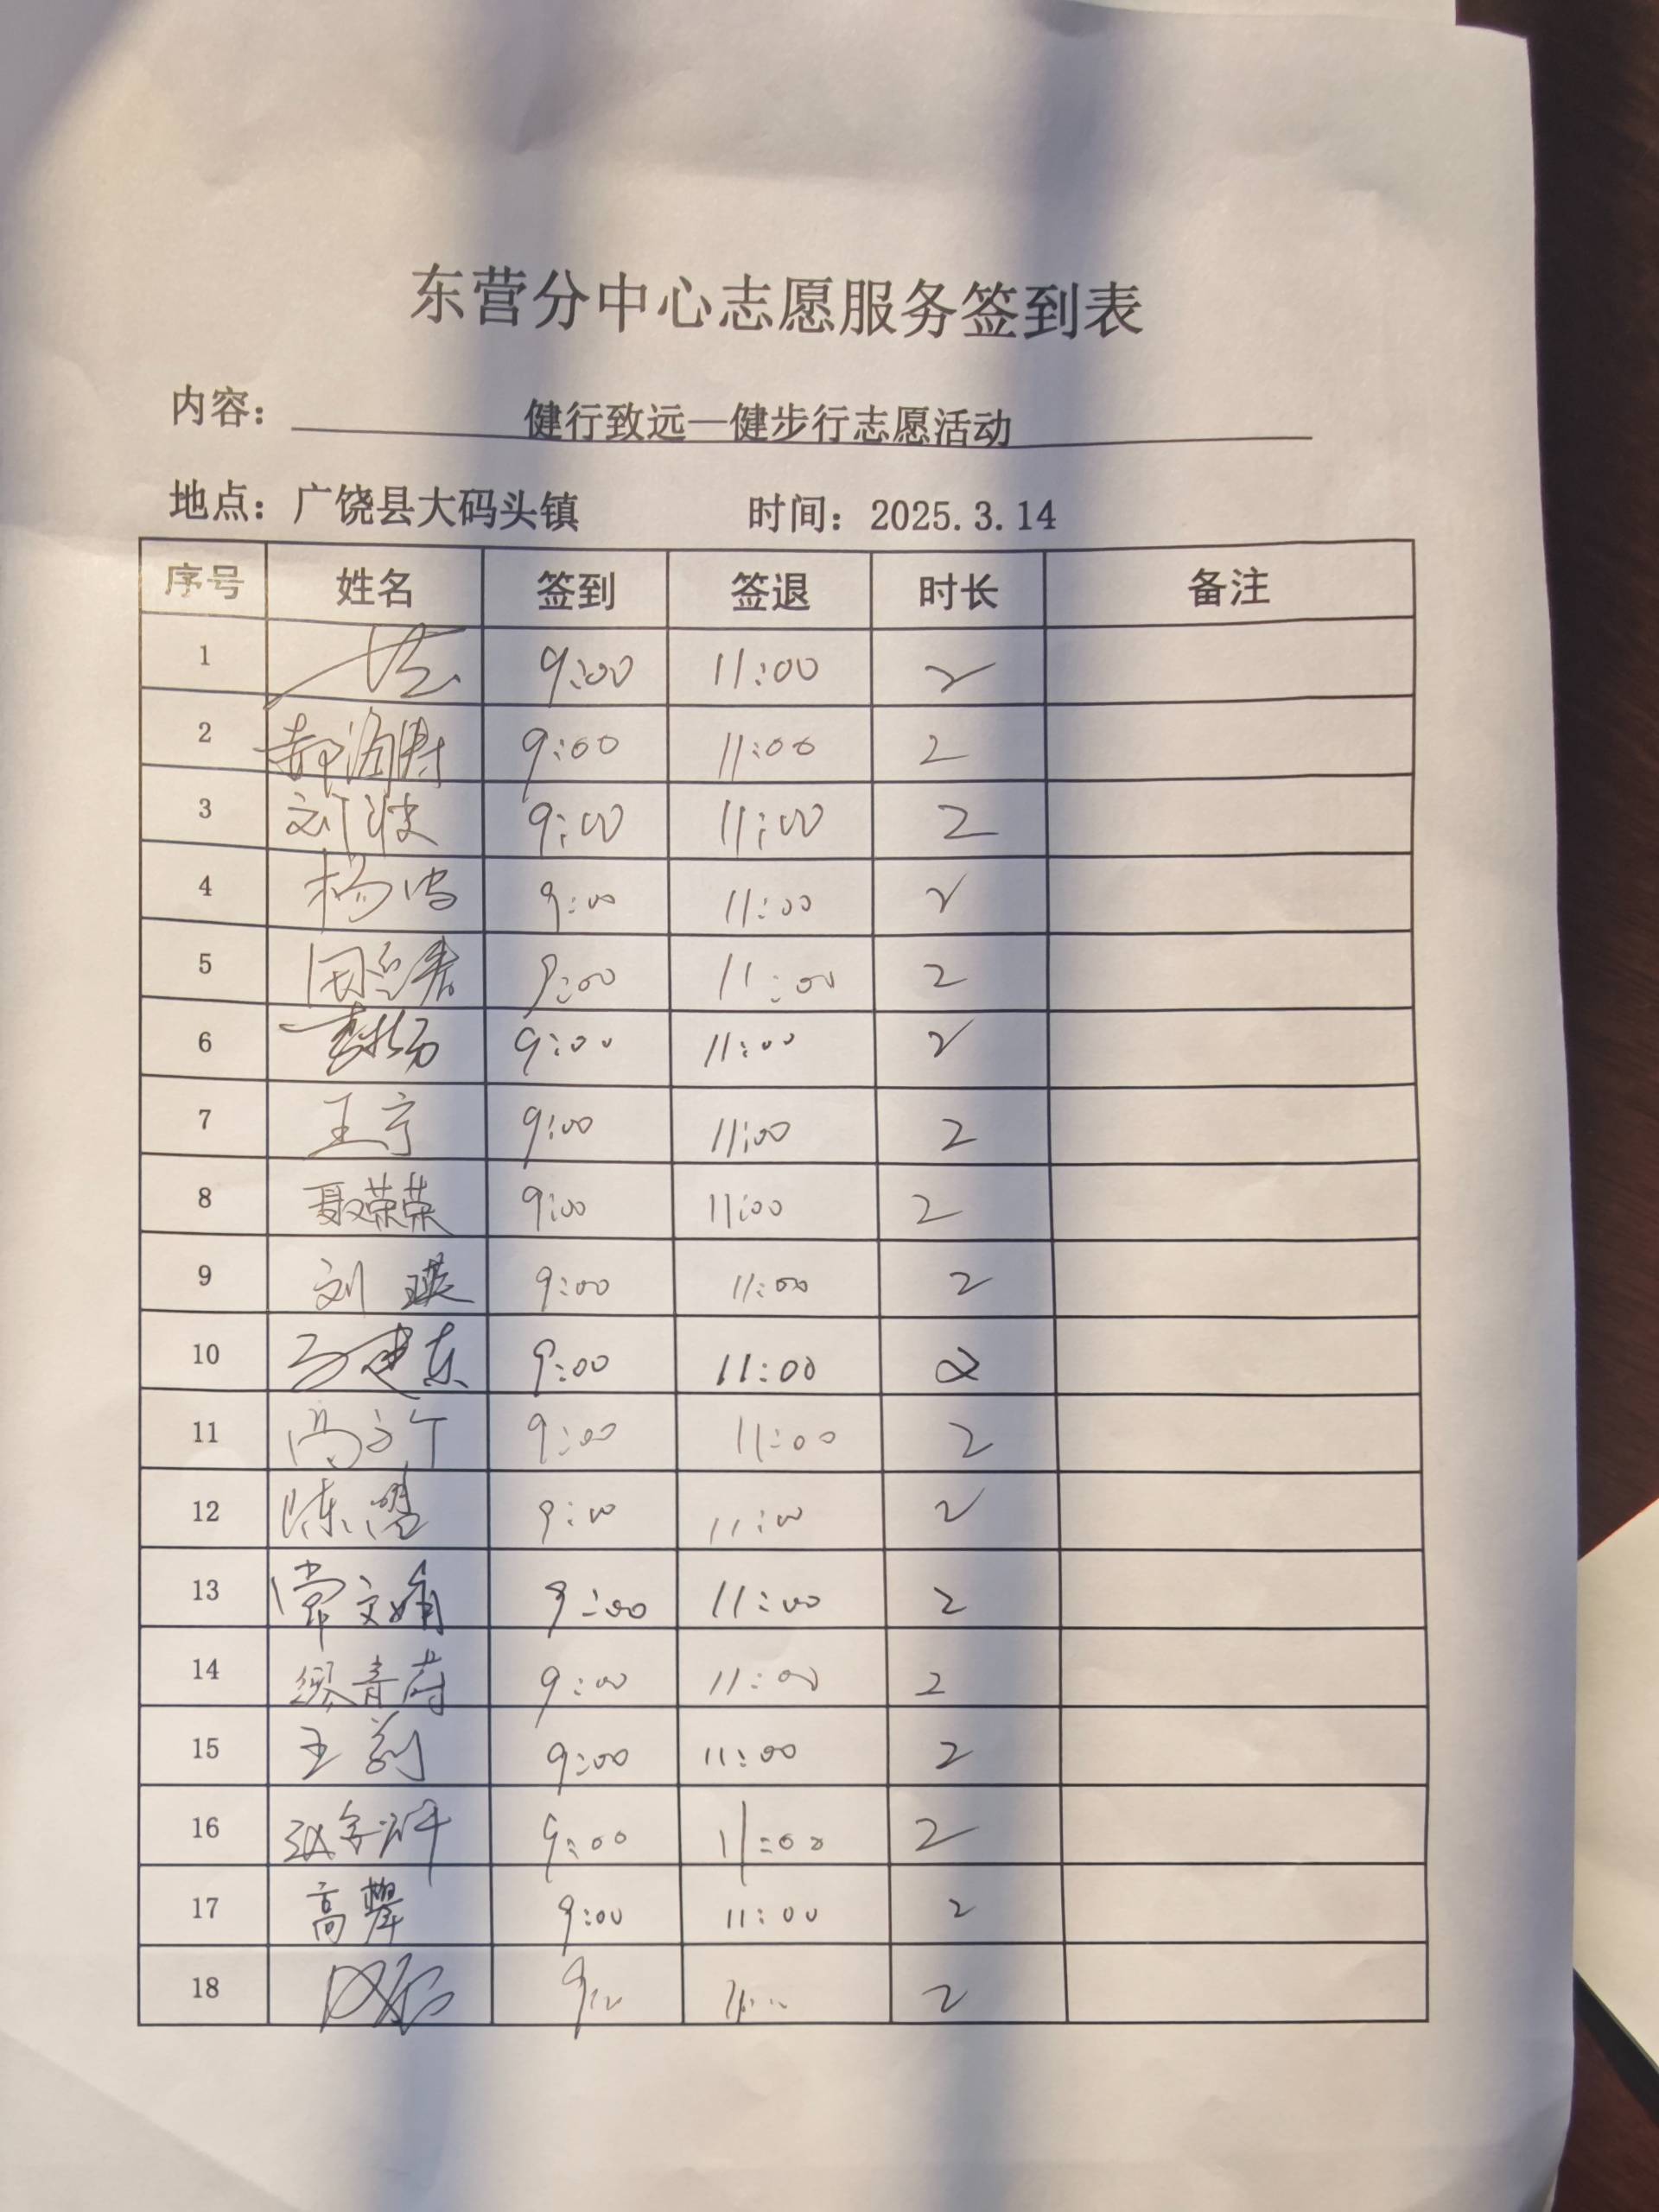 东营分中心志愿服务签到表
内容： 健行致远—健步行志愿活动
地点：广饶县大码头镇 时间：2025.3.14
序号 姓名 签到 签退 时长 备注
1 9:00 11:00 2
2 9:00 11:00 2
3 刘波 9:00 11:00 2
4 杨波 9:00 11:00 2
5 9:00 11:00 2
6 9:00 11:00 2
7 王宁 9:00 11:00 2
8 聂荣荣 9:00 11:00 2
9 刘瑛 9:00 11:00 2
10 马建东 9:00 11:00 2
11 9:00 11:00 2
12 陈 9:00 11:00 2
13 常文娟 9:00 11:00 2
14 缪青蔚 9:00 11:00 2
15 王 9:00 11:00 2
16 9:00 11:00 2
17 高 9:00 11:00 2
18 2